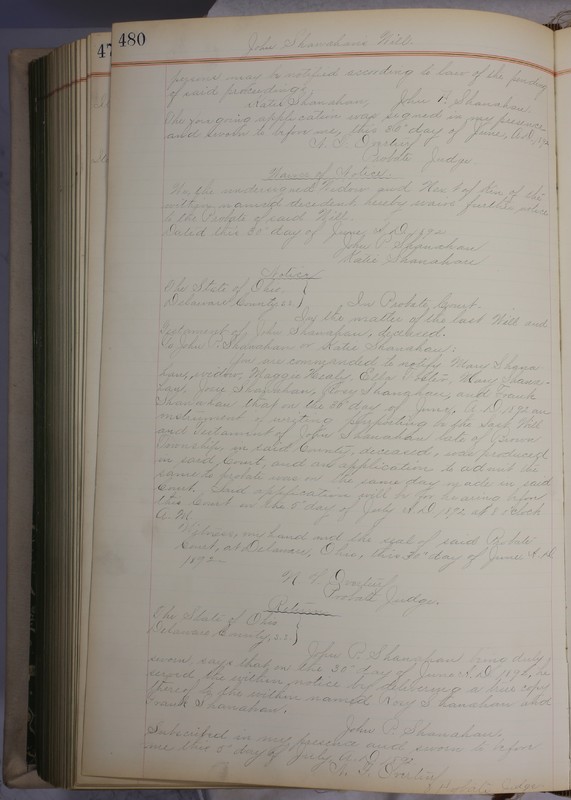 47
480
John Shanahans Will
persons may be notified according to law of the pending
of said proceedings.
Katie Shanahan, John P. Shanahan
The foregoing application was signed in my presence
and sworn to before me, this 30" day of June, A.D. 1892
Probate Judge.
Waiver of Notice
We the undersigned Widow and Next of Kin of the
within named decedent hereby waive further notice
to the Probate of said Will.
Dated this 30" day of June, A.D. 1892
John P. Shanahan
Katie Shanahan
Notice
The State of Ohio
Delaware County, ss. In Probate Court.
In the matter of the last Will and
Testament of John Shanahan, deceased.
To John P. Shanahan or Katie Shanahan:
You are commanded to notify Mary Shana
han, widow, Maggie Healy, Ella Mary Shana-
han, Josie Shanahan, Rosy Shanahan, and Frank
Shanahan that on the 30" day of June, A.D. 1892 an
instrument of writing purporting to be the Last Will
and Testament of John Shanahan late of Genoa
Township, in said County, deceased, was produced
in said Court, and an application to admit the
same to probate was on the same day made in said
Court. Said application will be for hearing before
this Court on the 5" day of July A.D. 1892 at 8 o'clock
A.M.
Witness, my hand and the seal of said Probate
Court, at Delaware, Ohio, this 30" day of June A.D.
1892
Probate Judge.
Return
The State of Ohio
Delaware County, ss.
John P. Shanahan being duly
sworn says that on the 30" day of June A.D. 1892, he
served the within notice by delivering a true copy
thereof to the within named Rosy Shanahan and
Frank Shanahan.
John P. Shanahan.
Subscribed in my presence and sworn to before
me this 5" day of July A.D. 1892
Probate Judge